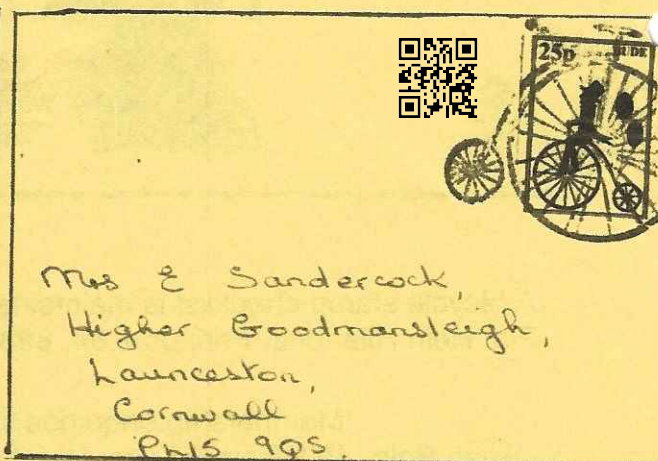 25p
Mrs E Sandercock,
Higher Goodmansleigh,
Launceston,
Cornwall
PL15 9QS.